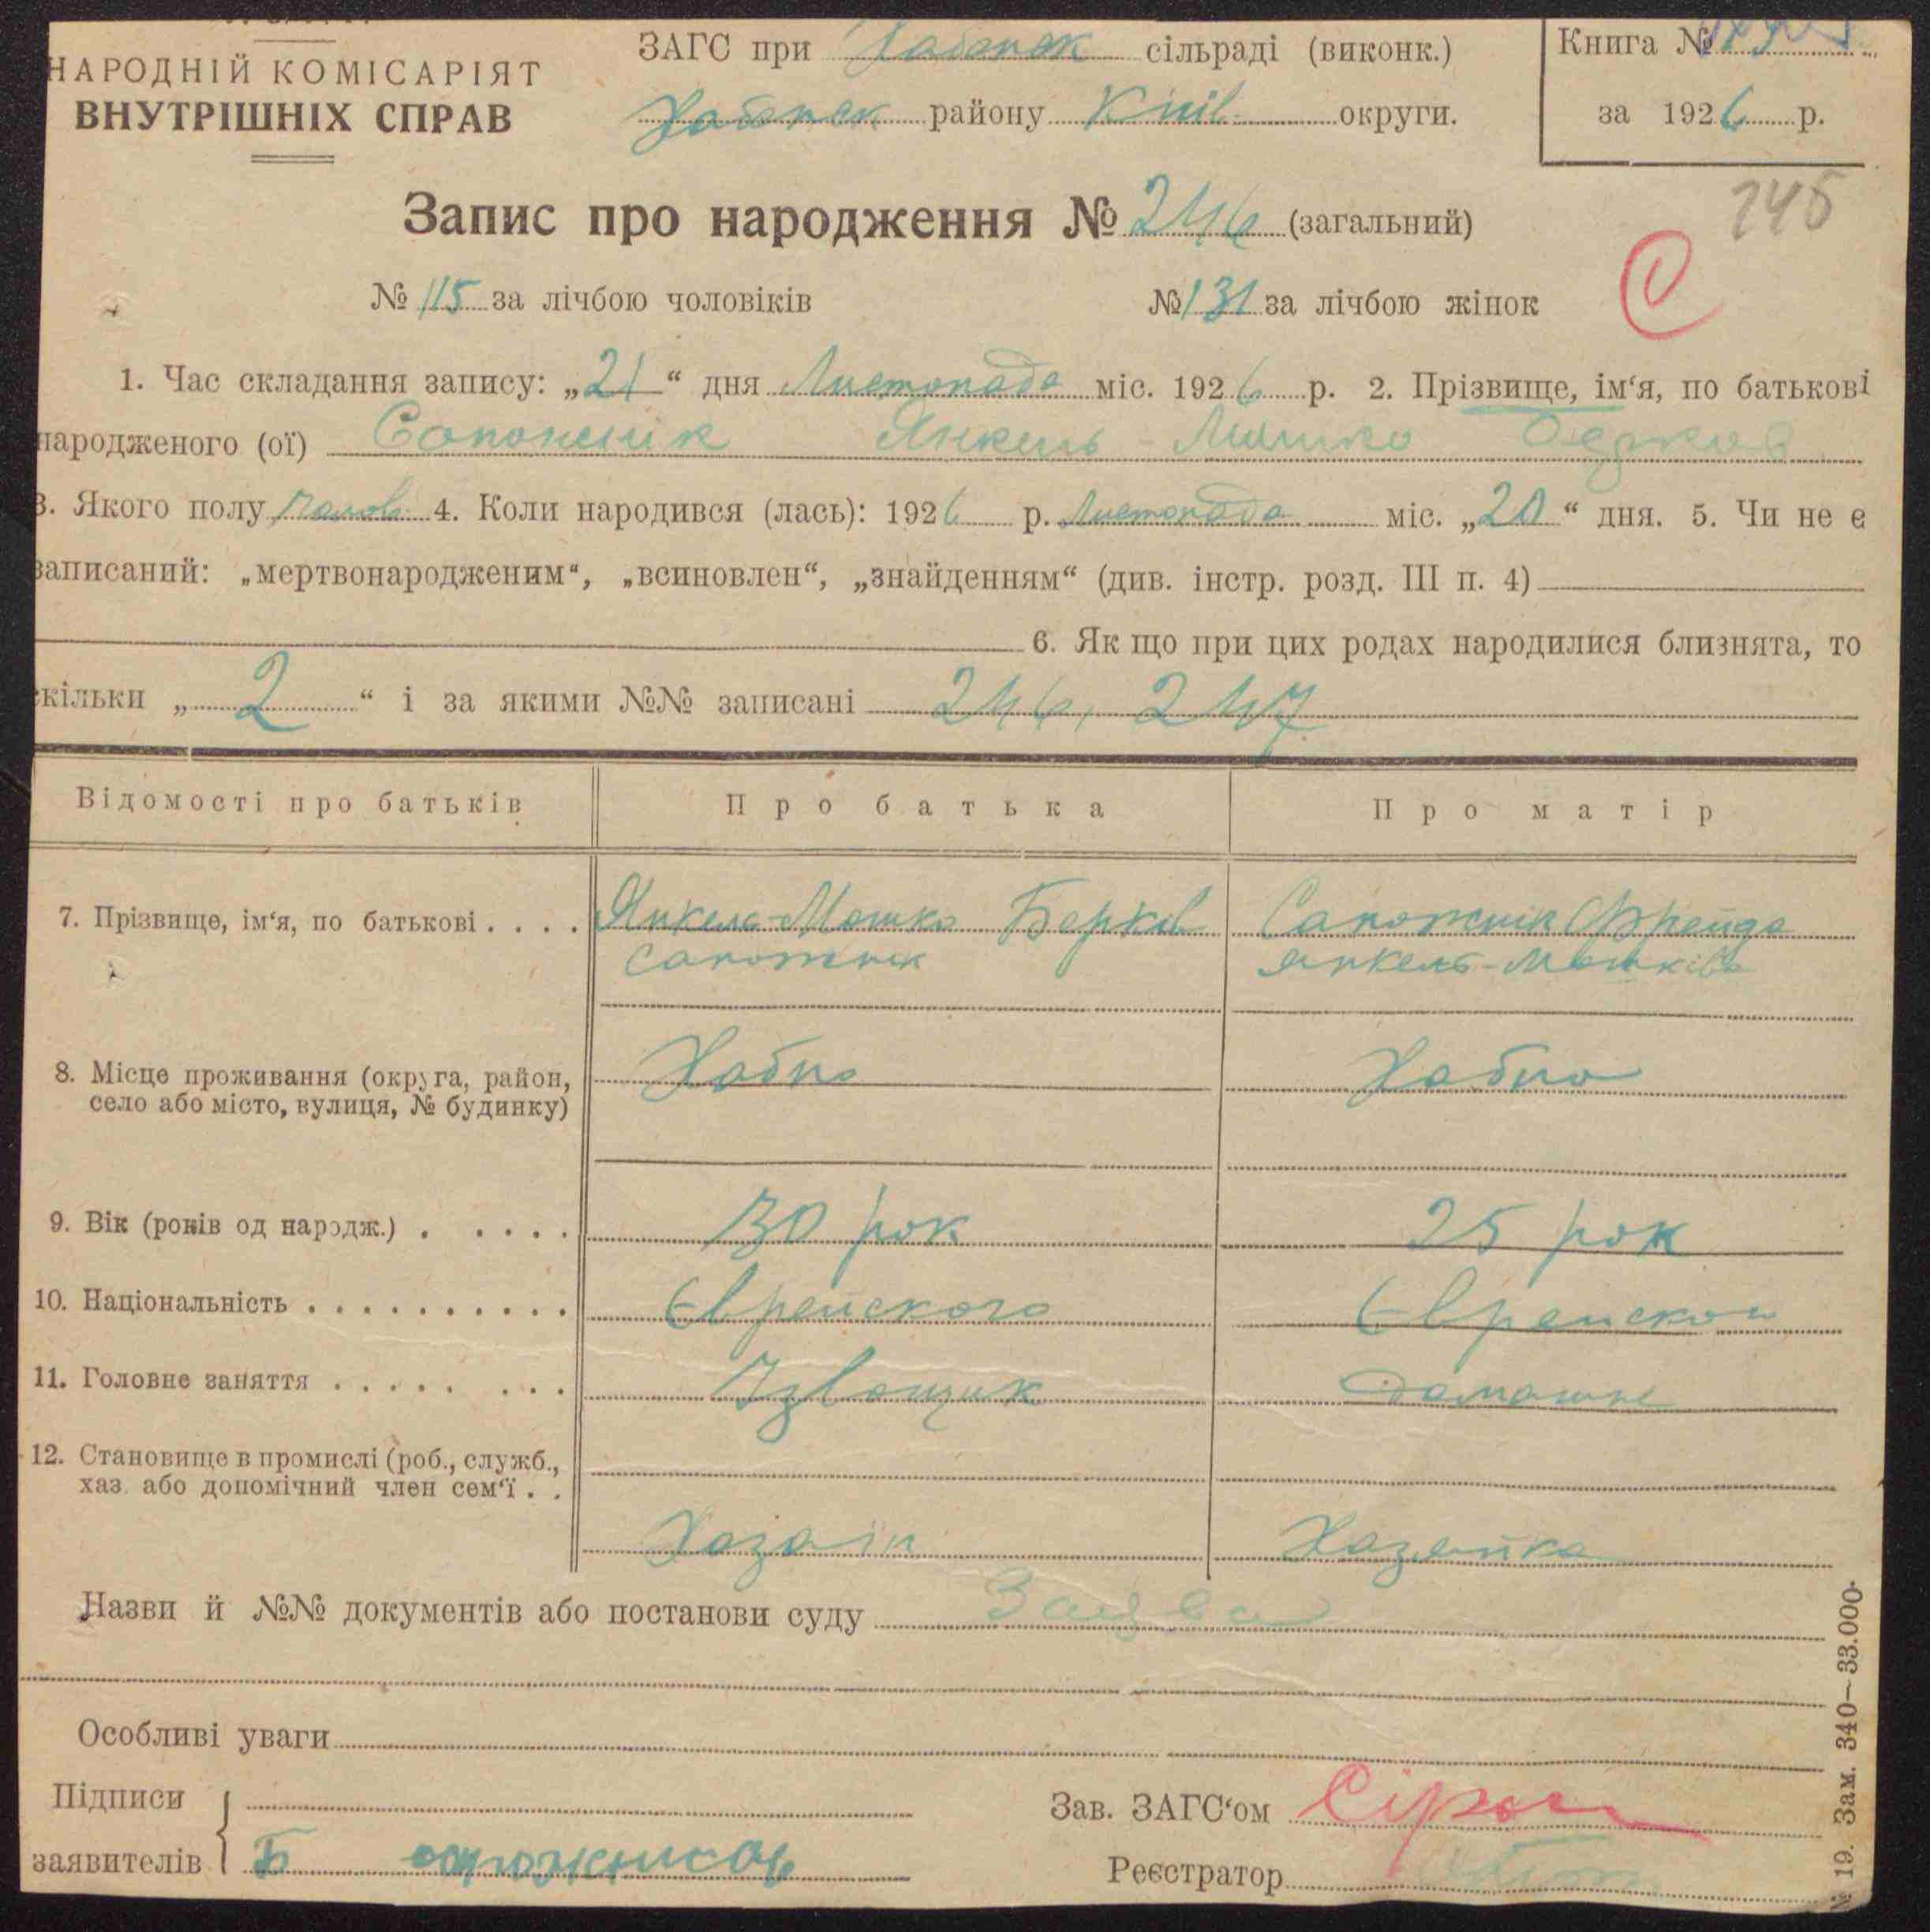 НАРОДНІЙ КОМІСАРІЯТ
ВНУТРІШНІХ СПРАВ
ЗАГС при Хабенск сільраді (виконк.)
Хабенск району Київ. округи.
Книга №
за 1926 р.
Запис про народження № 246 (загальний)
245
№ 115 за лічбою чоловіків № 131 за лічбою жінок
1. Час складання запису: „21“ дня Листопада міс. 1926 р. 2. Прізвище, ім‘я, по батькові
народженого (ої) Сапожнік Янкель-Мошко Берков
3. Якого полу чолов. 4. Коли народився (лась): 1926 р. Листопада міс. „20“ дня. 5. Чи не є
записаний: „мертвонародженим“, „всиновлен“, „знайденням“ (див. інстр. розд. III п. 4)
6. Як що при цих родах народилися близнята, то
скільки „2“ і за якими №№ записані 246, 247
Відомості про батьків Про батька Про матір
7. Прізвище, ім‘я, по батькові . . . . Янкель-Мошко Берків Сапожнік Фрейда
Сапожнік Янкель-Мошківа
8. Місце проживання (округа, район, Хабно Хабно
село або місто, вулиця, № будинку)
9. Вік (років од народж.) . . . . . 30 рок 25 рок
10. Національність . . . . . . . . . . Єврейского Єврейской
11. Головне заняття . . . . . . . . Ізвощик Домашне
12. Становище в промислі (роб., служб.,
хаз. або допомічний член сем‘ї . .
Хазаїн Хазяйка
Назви й №№ документів або постанови суду Заява
Особливі уваги
Підписи
заявителів Б
Зав. ЗАГС‘ом
Реєстратор
№ 19. Зам. 340—33.000.